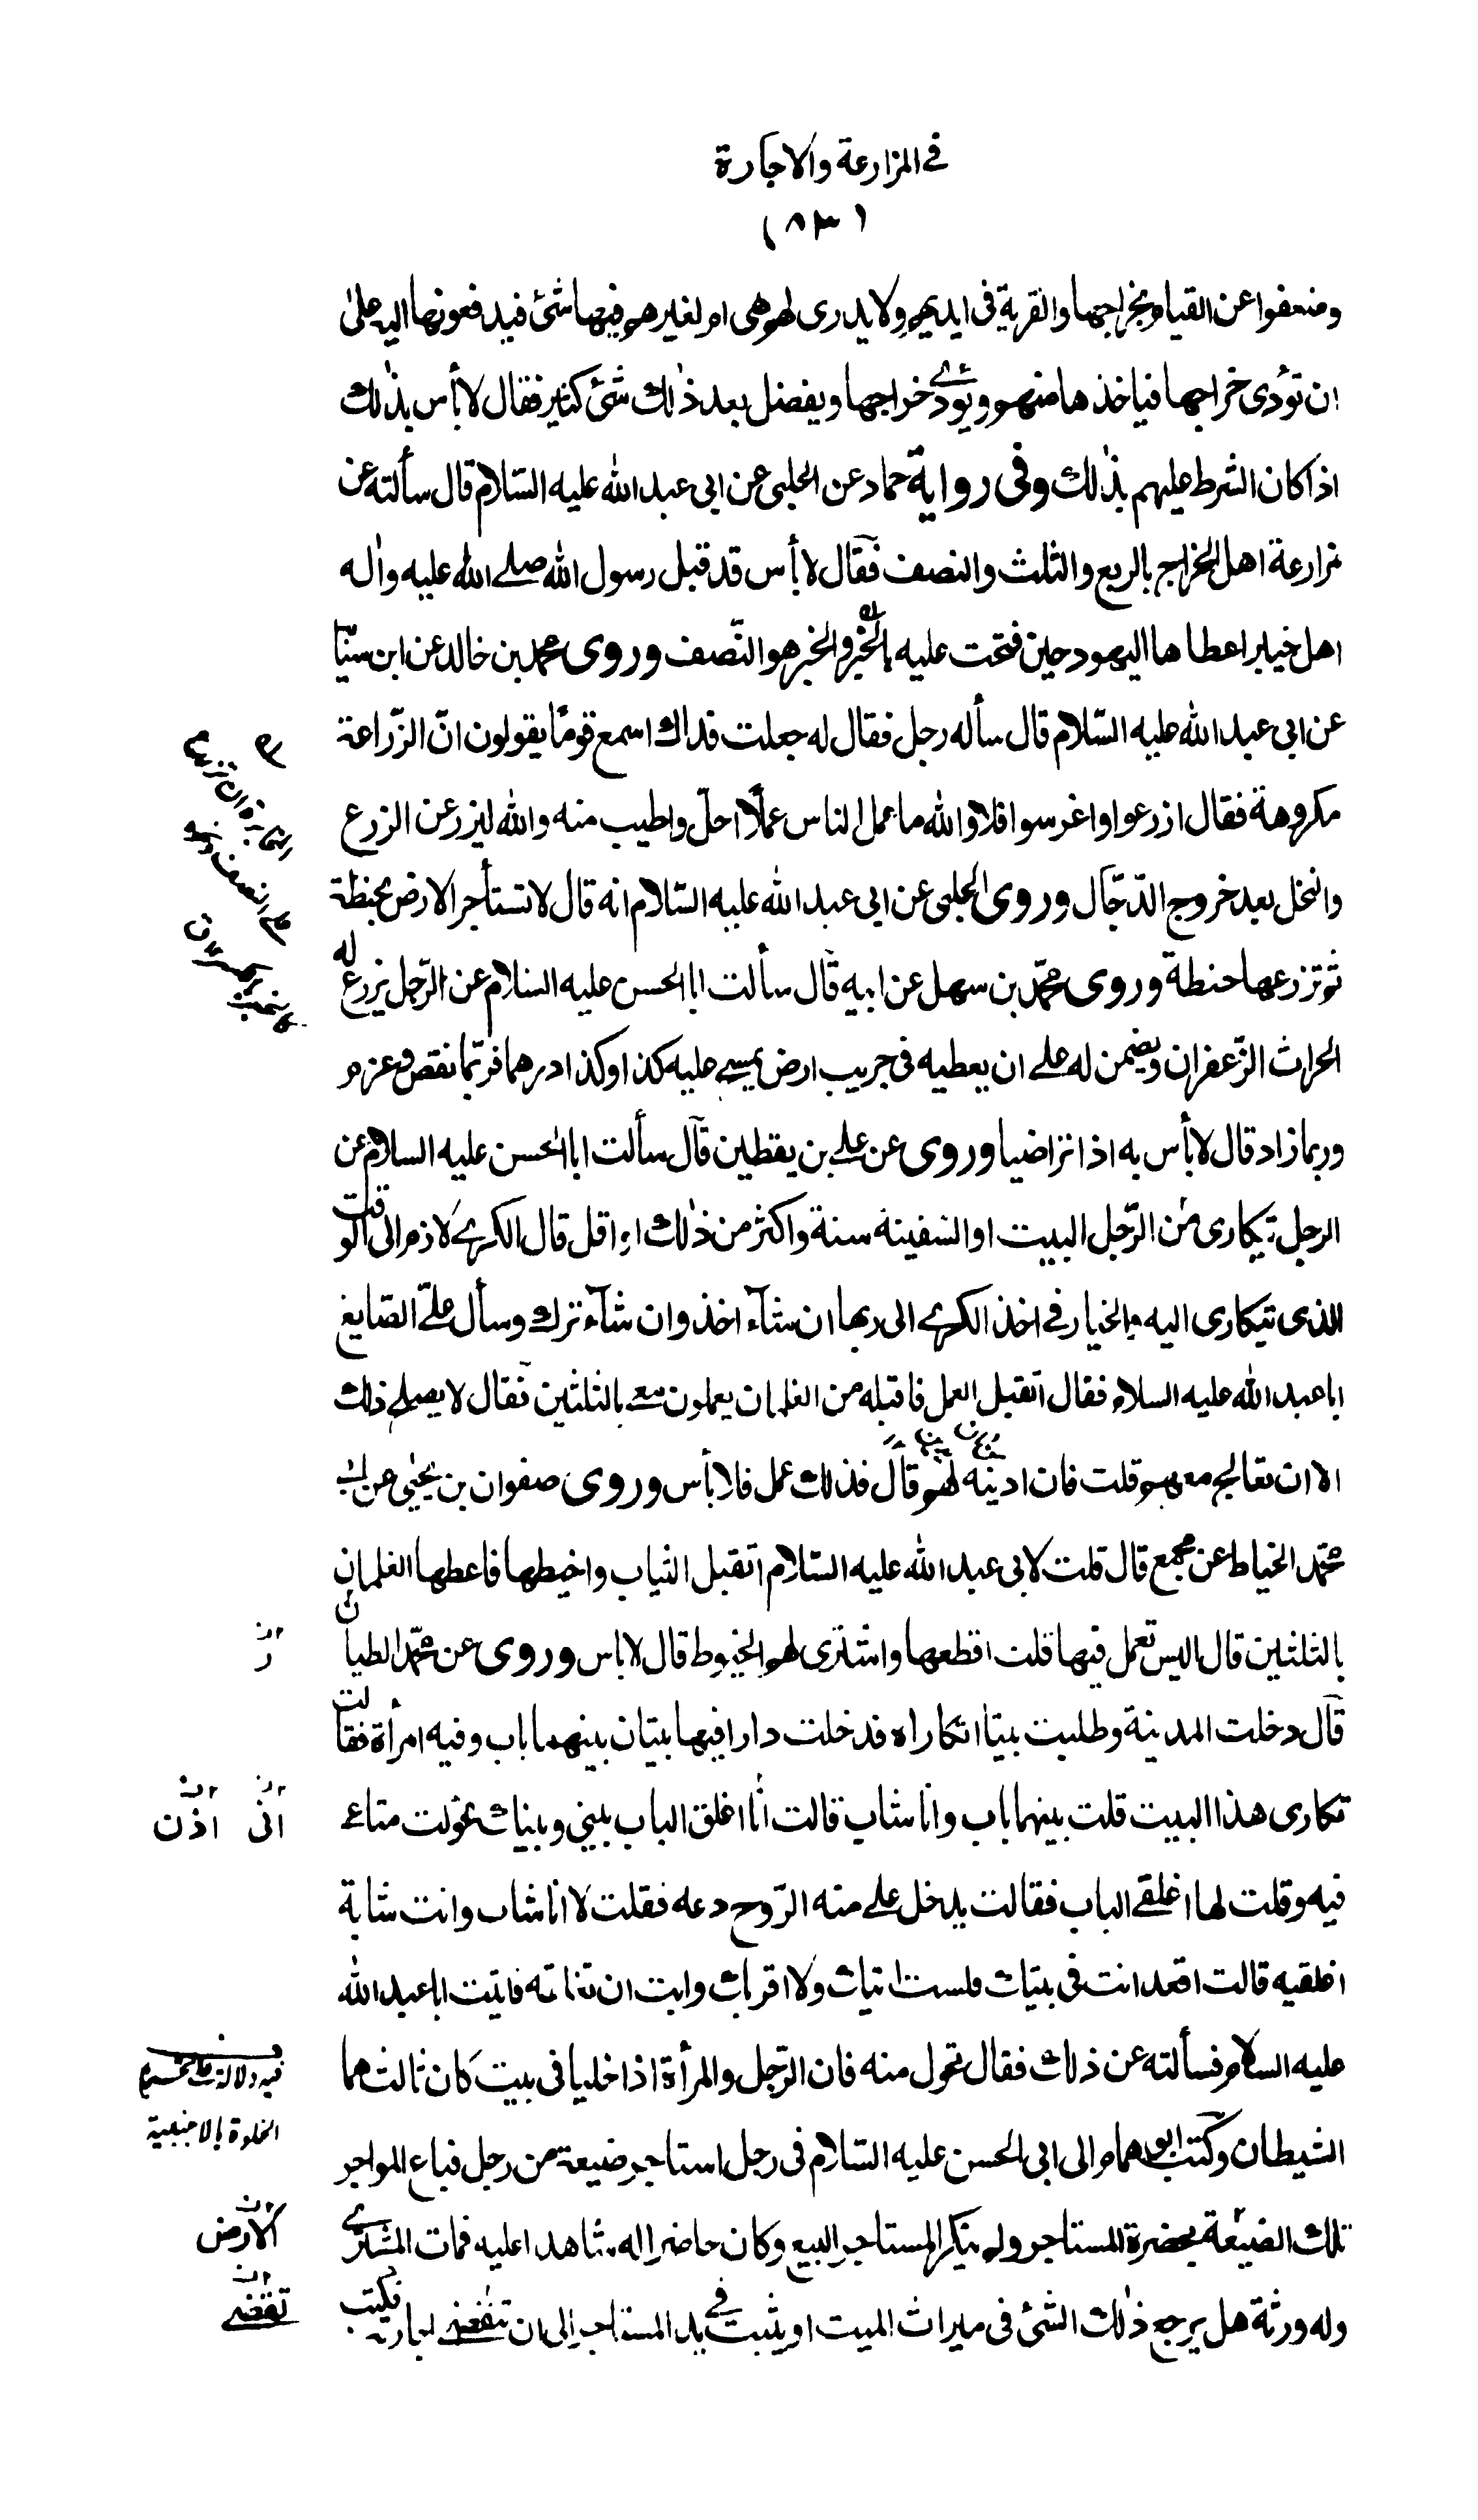 في المزارعة والاجارة
(١٨٣)
وضعفوا عن القيام بخراجها والقرية في ايديهم ولا يدرى لهم هي ام لغيرهم فيها شئ فيدفعونها اليه على
ان تؤدى خراجها فياخذها منهم ويؤدي خراجها ويفضل بعد ذلك شئ كثير فقال لا بأس بذلك
اذا كان الشرط عليهم بذلك وفي رواية حماد عن الحلبي عن ابي عبد الله عليه السّلام قال سألته عن
مزارعة اهل الخراج بالربع والثلث والنصف فقال لا بأس قد قبل رسول الله صلى الله عليه واله
اهل خيبر اعطاها اليهود حين فتحت عليه بالخبر والخبر هو النّصف وروى محمد بن خالد عن ابن سيّا
عن ابى عبد الله عليه السّلام قال سأله رجل فقال له جعلت فداك اسمع قومًا يقولون انّ الزّراعة
مكروهة فقال ازرعوا واغرسوا فلا والله ما عمل الناس عملًا احلّ واطيب منه والله ليزرعن الزرع
والنخل بعد خروج الدّجّال وروى الحلبي عن ابي عبد الله عليه السّلام انه قال لا تستأجر الارض بحنطة
ثم تزرعها حنطة وروى محمّد بن سهل عن ابيه قال سألت ابا الحسن عليه السلام عن الرّجل يزرع له
الحراث الزّعفران ويضمن له على ان يعطيه في جريب ارض يمسح عليه كذا وكذا درهما فربّما نقص وغرم
وربما زاد قال لا بأس به اذا تراضيا وروى عن علي بن يقطين قال سألت ابا الحسن عليه السلام عن
الرجل يتكارى من الرّجل البيت او السّفينة سنة واكثر من ذلك او اقل قال الكرى لازم الى الوقت
الذى تتكارى اليه والخيار في اخذ الكرى الى ربها ان شآء اخذ وان شآء ترك وسأل علي الصّايغ
ابا عبد الله عليه السلام فقال اتقبل العمل فاقبله من الغلمان يعملون معي بالثلثين فقال لا يصلح ذلك
الا ان تعالج معهم قلت فان ادينه لهم قال فذلك عمل فلا بأس وروى صفوان بن يحيى عن ابي
محمّد الخياط عن مجمع قال قلت لابى عبد الله عليه السّلام اتقبل الثياب واخيطها فاعطها الغلمان
بالثلثين قال اليس تعمل فيها قلت اقطعها واشترى لهم الخيوط قال لا باس وروى عن محمّد الطيان
ر
قال دخلت المدينة وطلبت بيتا اتكاراه فدخلت دارا فيها بيتان بينهما باب وفيه امرأة فقالت
تكارى هذا البيت قلت بينهما باب وانا شاب قالت انا اغلق الباب بيني وبينك فحولت متاعي
انى اذن
فيه وقلت لها اغلقي الباب فقالت يدخل علي منه الرّوح دعه فقلت لا انا شاب وانت شابة
اغلقيه قالت اقعد انت في بيتك فلست اتيك ولا اقربك وابت ان تغلقه فاتيت ابا عبد الله
عليه السلام فسألته عن ذلك فقال تحول منه فان الرّجل والمرأة اذا خليا في بيت كان ثالثهما
فيه دلالة على تحريم
الخلوة بالاجنبية
الشيطان وكتب ابو همام الى ابي الحسن عليه السّلام في رجل استاجر ضيعة من رجل فباع المواجر
تلك الضيعة بحضرة المستاجر ولم ينكر المستاجر البيع وكان حاضرا له شاهدا عليه فمات المشترى
الارض
وله ورثة هل يرجع ذلك الشئ في ميراث الميت او يثبت في يد المستاجر الى ان تنقضي اجارته فكتب
تقضي